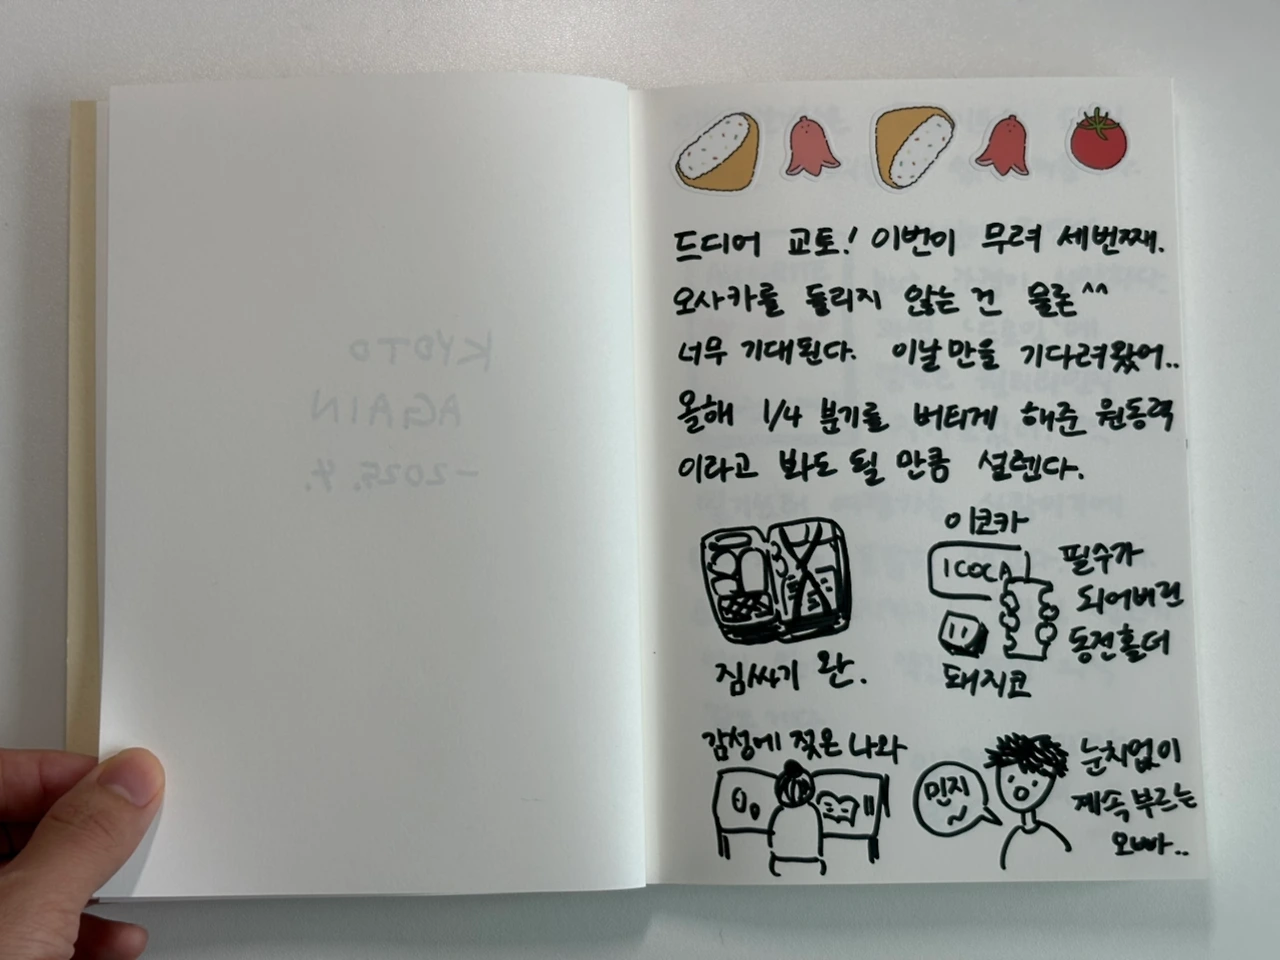 KYOTO
AGAIN
-2025. 4.
드디어 교토! 이번이 무려 세번째.
오사카를 들리지 않는 건 물론^^
너무 기대된다. 이날만을 기다려왔어..
올해 1/4 분기를 버티게 해준 원동력
이라고 봐도 될 만큼 설렌다.
짐싸기 완.
이코카
ICOCA
돼지코
필수가
되어버린
동전홀더
감성에 젖은 나와
민지~
눈치없이
계속 부르는
오빠..